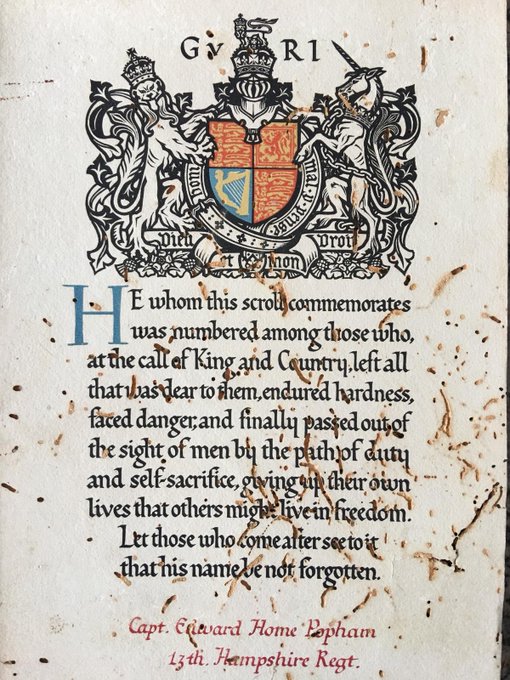 GvRI
Honi
mal y pense
Dieu et mon Droit
HE whom this scroll commemorates
was numbered among those who,
at the call of King and Country, left all
that was dear to them, endured hardness,
faced danger, and finally passed out of
the sight of men by the path of duty
and self-sacrifice, giving up their own
lives that others might live in freedom.
Let those who come after see to it
that his name be not forgotten.
Capt. Edward Home Popham
13th. Hampshire Regt.